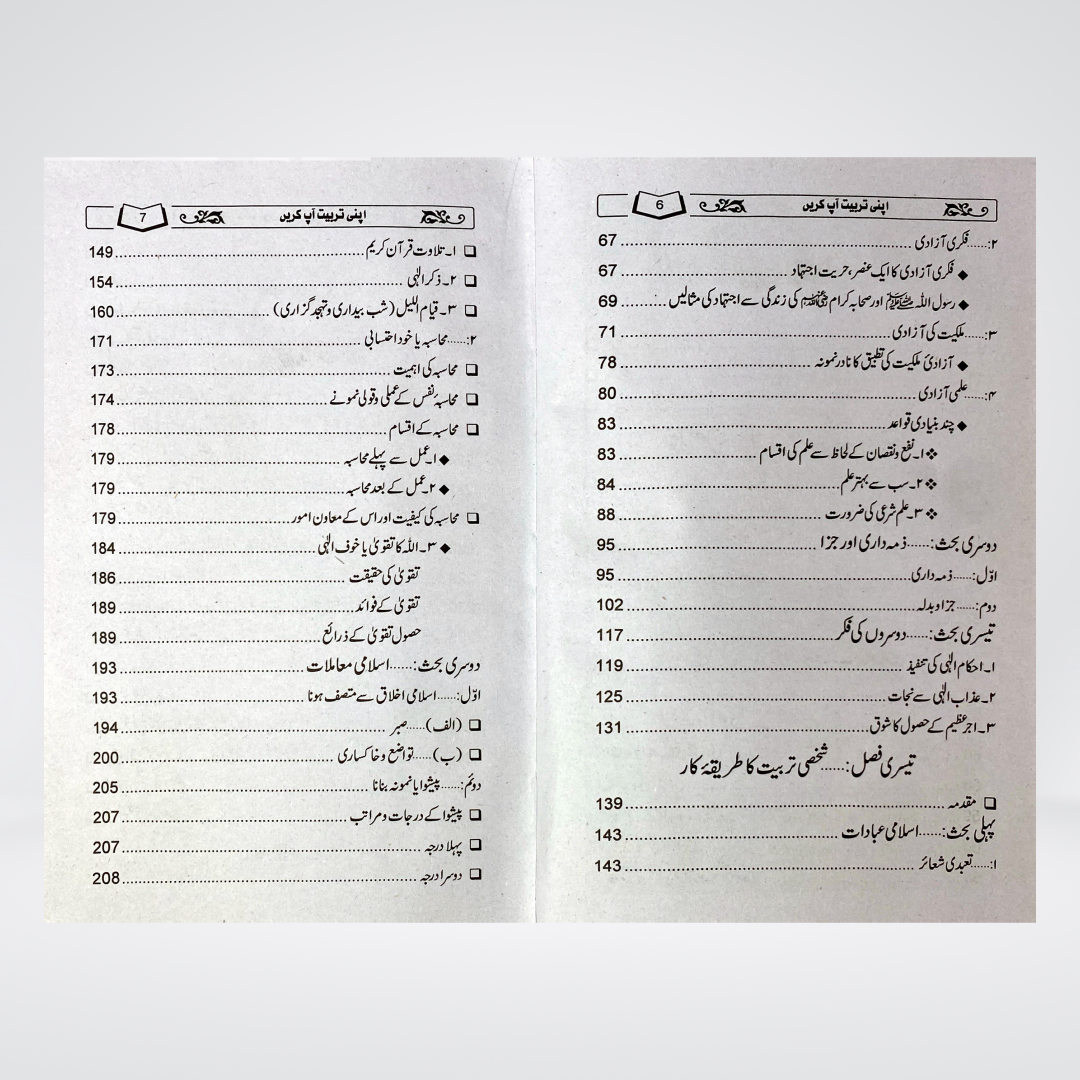 6 اپنی تربیت آپ کریں
۲:......فکری آزادی ............ 67
◆ فکری آزادی کا ایک عنصر، حریت اجتہاد ............ 67
◆ رسول اللہ ﷺ اور صحابہ کرام رضی اللہ عنہم کی زندگی سے اجتہاد کی مثالیں ............ 69
۳:......ملکیت کی آزادی ............ 71
◆ آزادیٔ ملکیت کی تطبیق کا نادر نمونہ ............ 78
۴:......علمی آزادی ............ 80
◆ چند بنیادی قواعد ............ 83
❖ ۱۔ نفع و نقصان کے لحاظ سے علم کی اقسام ............ 83
❖ ۲۔ سب سے بہتر علم ............ 84
❖ ۳۔ علم شرعی کی ضرورت ............ 88
دوسری بحث:......ذمہ داری اور جزا ............ 95
اوّل:......ذمہ داری ............ 95
دوم:......جزا و بدلہ ............ 102
تیسری بحث:......دوسروں کی فکر ............ 117
۱۔ احکام الٰہی کی تنفیذ ............ 119
۲۔ عذاب الٰہی سے نجات ............ 125
۳۔ اجر عظیم کے حصول کا شوق ............ 131
تیسری فصل:......شخصی تربیت کا طریقۂ کار
❑ مقدمہ ............ 139
پہلی بحث:......اسلامی عبادات ............ 143
۱:......تعبدی شعائر ............ 143
7 اپنی تربیت آپ کریں
❑ ۱۔ تلاوت قرآن کریم ............ 149
❑ ۲۔ ذکر الٰہی ............ 154
❑ ۳۔ قیام اللیل (شب بیداری و تہجد گزاری) ............ 160
۲:......محاسبہ یا خود احتسابی ............ 171
❑ محاسبہ کی اہمیت ............ 173
❑ محاسبۂ نفس کے عملی و قولی نمونے ............ 174
❑ محاسبہ کے اقسام ............ 178
◆ ۱۔ عمل سے پہلے محاسبہ ............ 179
◆ ۲۔ عمل کے بعد محاسبہ ............ 179
❑ محاسبہ کی کیفیت اور اس کے معاون امور ............ 179
◆ ۳۔ اللہ کا تقویٰ یا خوف الٰہی ............ 184
تقویٰ کی حقیقت ............ 186
تقویٰ کے فوائد ............ 189
حصول تقویٰ کے ذرائع ............ 189
دوسری بحث:......اسلامی معاملات ............ 193
اوّل:......اسلامی اخلاق سے متصف ہونا ............ 193
❑ (الف)......صبر ............ 194
❑ (ب)......تواضع و خاکساری ............ 200
دوئم:......پیشوا یا نمونہ بنانا ............ 205
❑ پیشوا کے درجات و مراتب ............ 207
❑ پہلا درجہ ............ 207
❑ دوسرا درجہ ............ 208